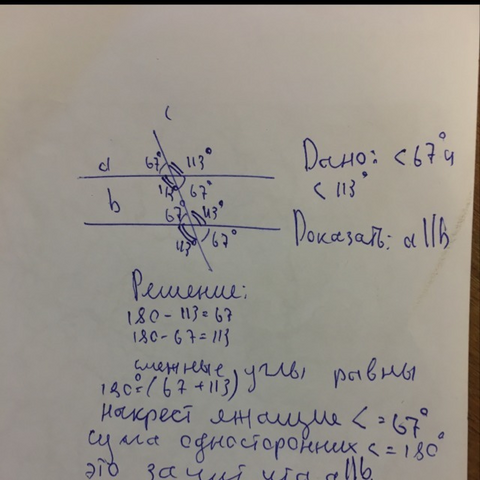 c
a 67° 113°
113° 67°
b 67° 113°
113° 67°
Дано: < 67° и
< 113°
Доказать: a||b
Решение:
180 - 113 = 67
180 - 67 = 113
смежные углы равны
180° = (67 + 113)
накрест лежащие < = 67°
сума односторонних < = 180°
это значит что a||b